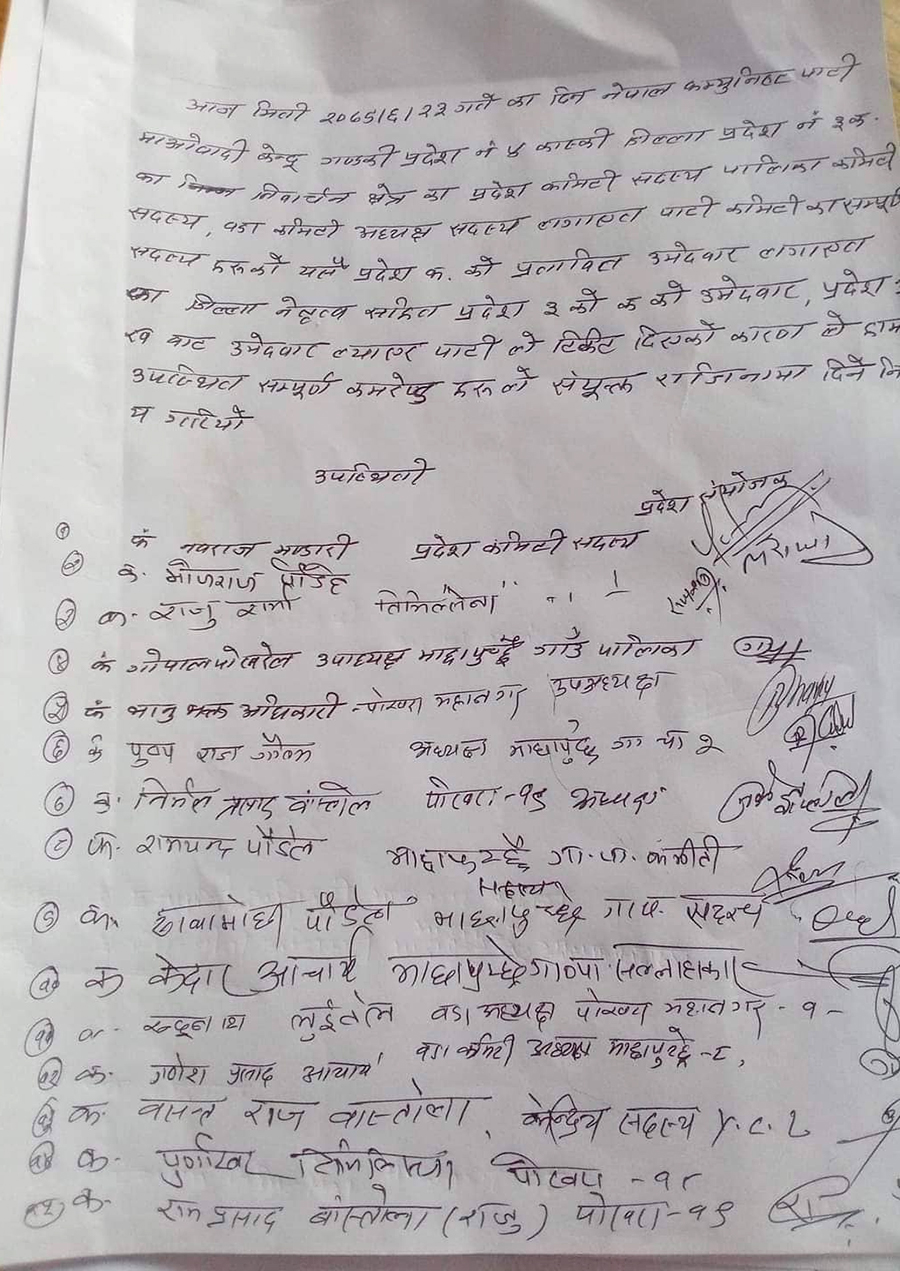 आज मिती २०७९/६/२३ गते का दिन नेपाल कम्युनिष्ट पार्टी
माओवादी केन्द्र गण्डकी प्रदेश नं ४ कास्की जिल्ला प्रदेश नं १ क.
का निर्वाचन क्षेत्र का प्रदेश कमिटी सदस्य पालिका कमिटी
सदस्य, वडा कमिटी अध्यक्ष सदस्य लगाएत पार्टी कमिटी का सम्पूर्ण
सदस्य हरुको यसै प्रदेश क. को प्रस्तावित उमेदवार लगाएत
का जिल्ला नेतृत्व सहित प्रदेश १ को क को उमेदवार, प्रदेश
ख बाट उमेदवार ल्याएर पार्टी ले टिकेट दिएको कारण ले हाम
उपस्थित सम्पूर्ण कमरेड हरुले संयुक्त राजिनामा दिने नि
य गरियो
उपस्थिती
प्रदेश संयोजक
१ कं नवराज भण्डारी प्रदेश कमिटी सदस्य
२ क. भोजराज पौडेल
३ क. राजु शर्मा तिमिल्सेना " "
४ कं गोपाल पोखरेल उपाध्यक्ष माछापुच्छ्रे गाउँ पालिका
५ कं भानु भक्त अधिकारी - पोखरा महानगर उपअध्यक्ष
६ कं पुष्प राज गौतम अध्यक्ष माछापुच्छ्रे गा पा २
७ क. निर्मल प्रसाद वास्तोला पोखरा-१९ अध्यक्ष
८ क. रामचन्द्र पौडेल माछापुच्छ्रे गा.पा. कमिटी
सदस्य
९ क. पौडेल माछापुच्छ्रे गापा. सदस्य
१० क केदार आचार्य माछापुच्छ्रे गा०पा सल्लाहकार
११ क. लुईटेल वडा अध्यक्ष पोखरा महानगर - १
१२ क. गणेश प्रसाद आचार्य वडा कमिटी अध्यक्ष माछापुच्छ्रे - ८,
१३ क. वसन्त राज वास्तोला, केन्द्रिय सदस्य Y.C.L
१४ क. पुर्णाखर तिमिल्सिना पोखरा - १९
१५ क. राम प्रसाद बास्तोला (राजु) पोखरा-१९